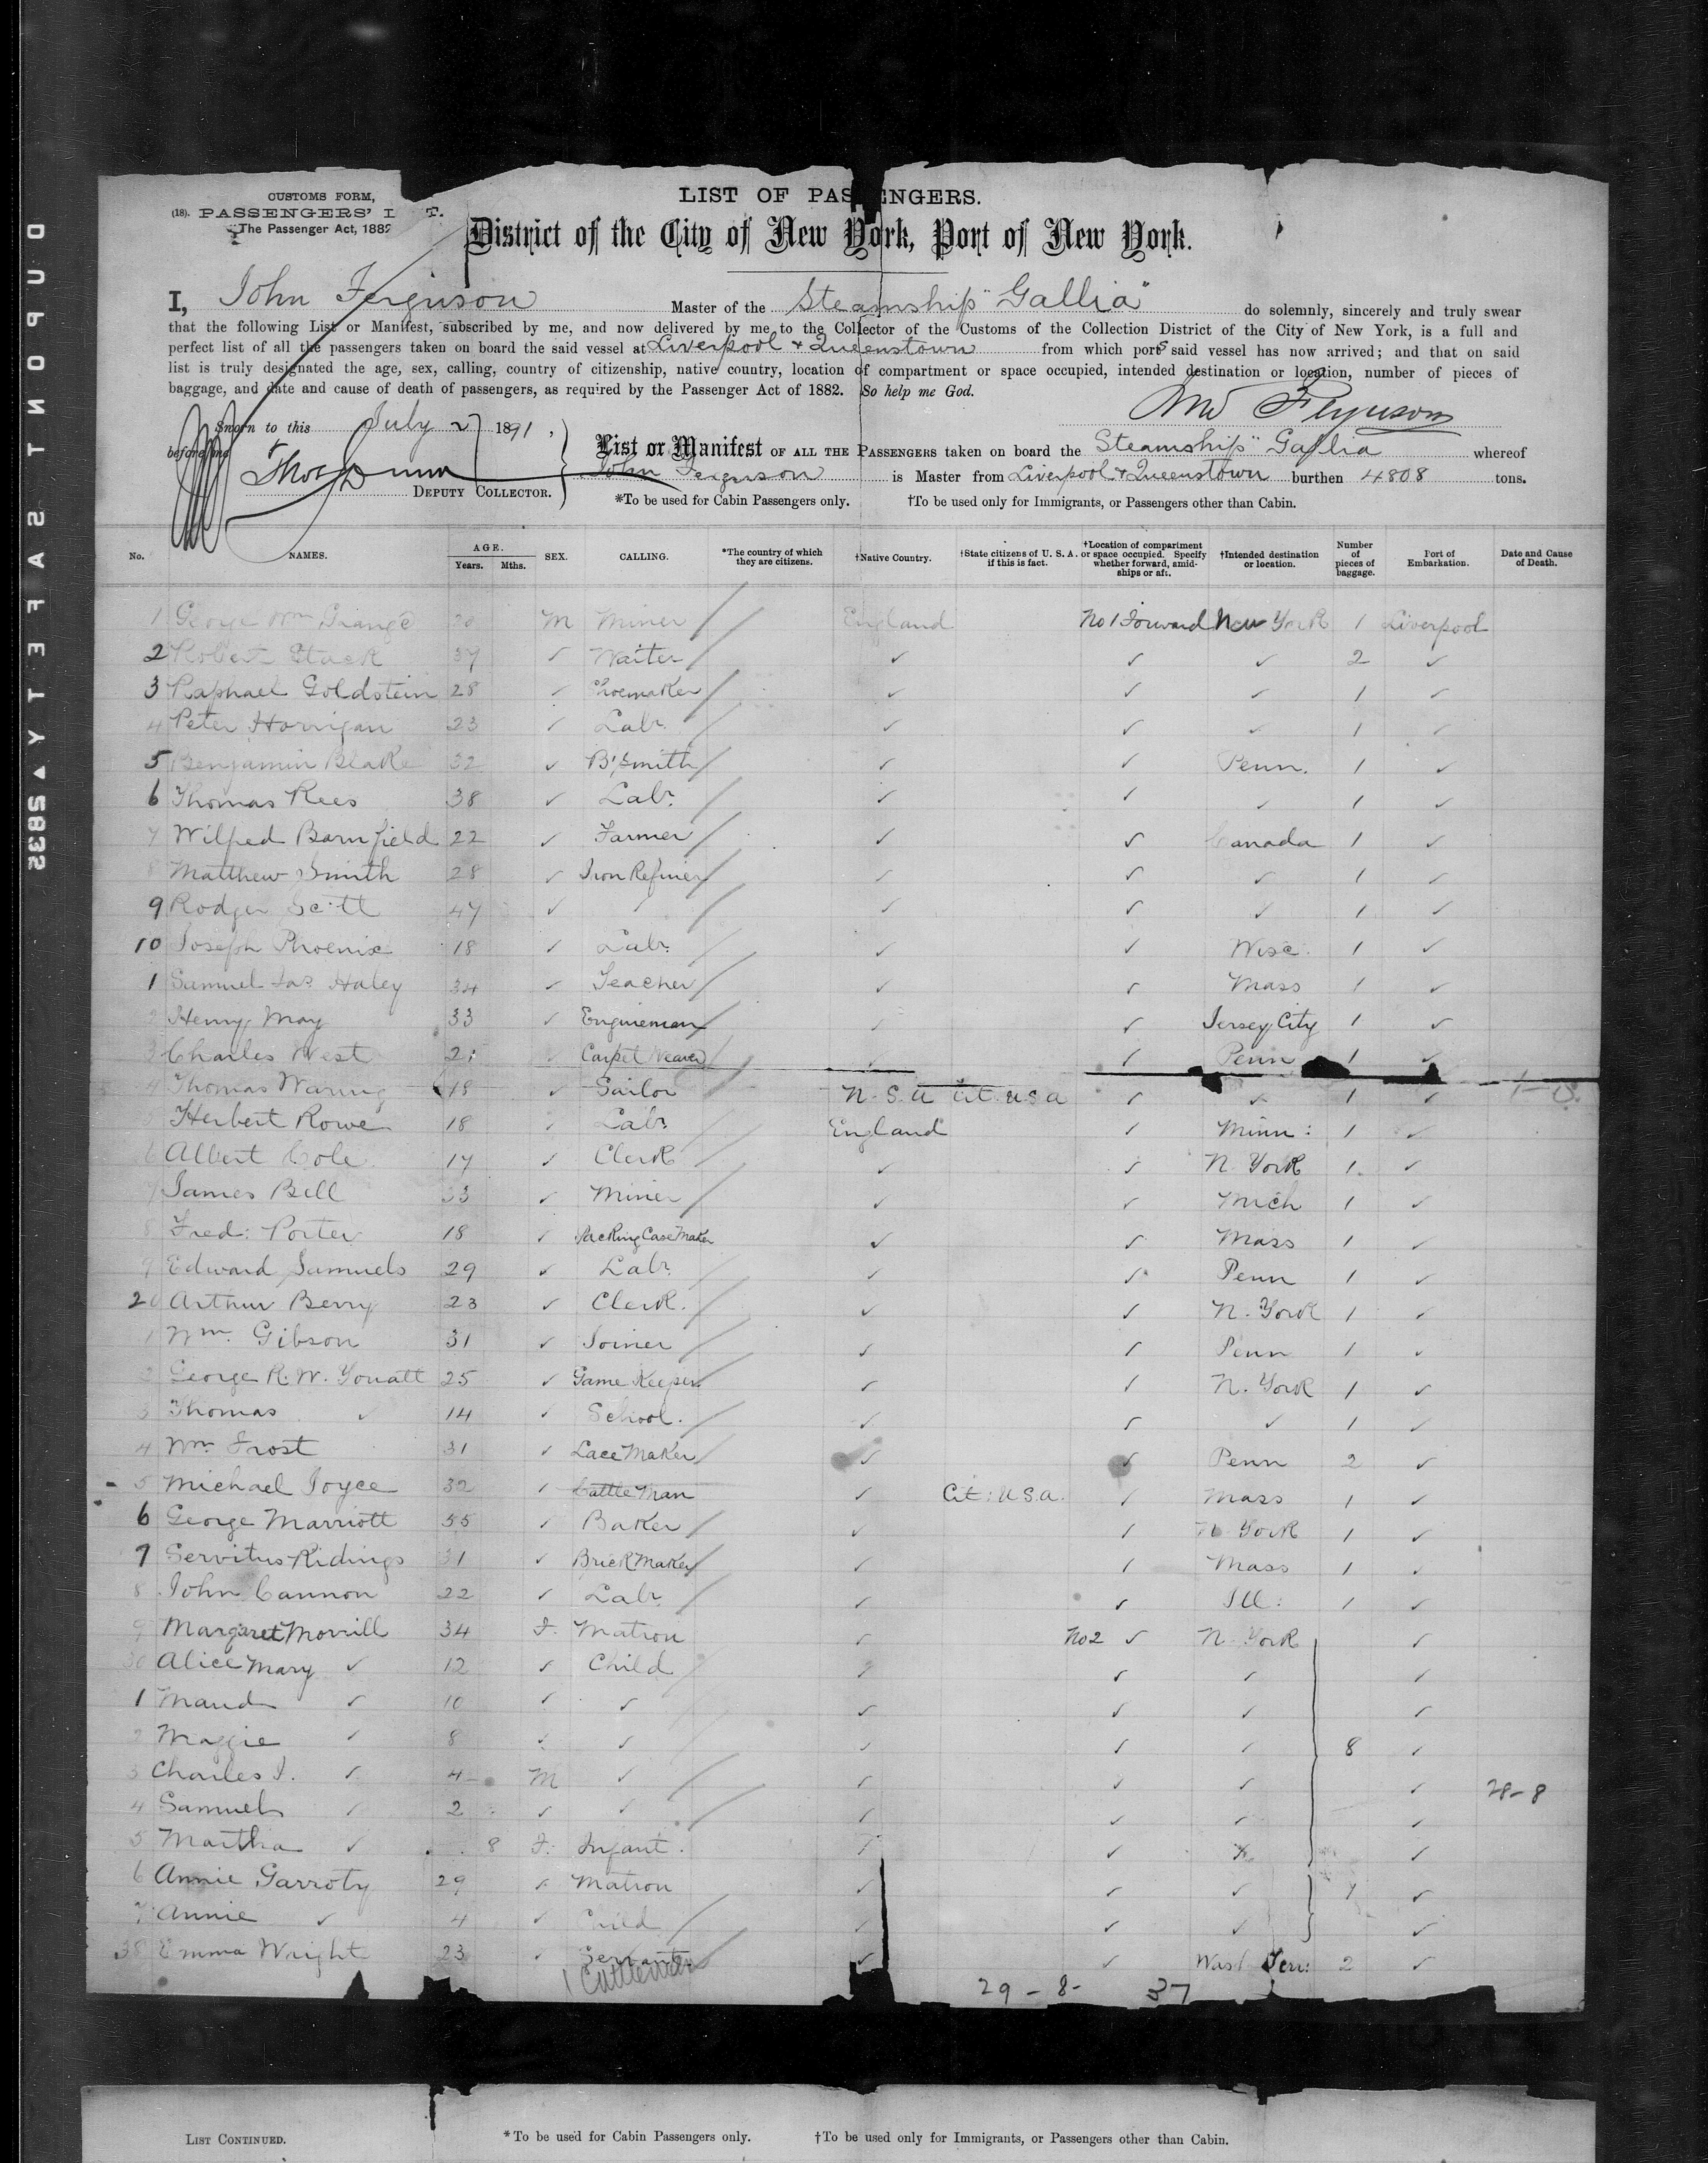 DUPONT SAFETY ▲ S832
CUSTOMS FORM,
(18). PASSENGERS' L T.
The Passenger Act, 1882
LIST OF PASSENGERS.
District of the City of New York, Port of New York.
I, John Ferguson Master of the Steamship "Gallia" do solemnly, sincerely and truly swear
that the following List or Manifest, subscribed by me, and now delivered by me to the Collector of the Customs of the Collection District of the City of New York, is a full and
perfect list of all the passengers taken on board the said vessel at Liverpool + Queenstown from which ports said vessel has now arrived; and that on said
list is truly designated the age, sex, calling, country of citizenship, native country, location of compartment or space occupied, intended destination or location, number of pieces of
baggage, and date and cause of death of passengers, as required by the Passenger Act of 1882. So help me God.
Jno Ferguson
Sworn to this July 2 1891,
before me
DEPUTY COLLECTOR.
List or Manifest OF ALL THE PASSENGERS taken on board the Steamship "Gallia whereof
John Ferguson is Master from Liverpool + Queenstown burthen 4808 tons.
*To be used for Cabin Passengers only. †To be used only for Immigrants, or Passengers other than Cabin.
No. NAMES. AGE. Years. Mths. SEX. CALLING. *The country of which they are citizens. †Native Country. †State citizens of U. S. A. if this is fact. †Location of compartment or space occupied. Specify whether forward, amidships or aft. †Intended destination or location. Number of pieces of baggage. Port of Embarkation. Date and Cause of Death.
1 George Wm Grange 20 M Miner England No 1 Forward New York 1 Liverpool
2 Robert Stack 37 ✓ Waiter ✓ ✓ ✓ 2 ✓
3 Raphael Goldstein 28 ✓ Shoemaker ✓ ✓ ✓ 1 ✓
4 Peter Horrigan 23 ✓ Labr. ✓ ✓ ✓ 1 ✓
5 Benjamin Blake 32 ✓ B'Smith ✓ ✓ Penn. 1 ✓
6 Thomas Rees 38 ✓ Labr. ✓ ✓ ✓ 1 ✓
7 Wilfred Barnfield 22 ✓ Farmer ✓ ✓ Canada 1 ✓
8 Matthew Smith 28 ✓ Iron Refiner ✓ ✓ ✓ 1 ✓
9 Rodger Scott 47 ✓ ✓ ✓ ✓ ✓ 1 ✓
10 Joseph Phoenix 18 ✓ Labr. ✓ ✓ Wisc. 1 ✓
1 Samuel Jas. Haley 34 ✓ Teacher ✓ ✓ Mass 1 ✓
2 Henry May 33 ✓ Engineman ✓ ✓ Jersey City 1 ✓
3 Charles West 21 ✓ Carpet Weaver ✓ ✓ Penn 1 ✓
4 Thomas Waring 18 ✓ Sailor N. S. A Cit. U.S.A ✓ ✓ 1 ✓
5 Herbert Rowe 18 ✓ Labr. England ✓ Minn: 1 ✓
6 Albert Cole 17 ✓ Clerk ✓ ✓ N. York 1 ✓
7 James Bell 33 ✓ Miner ✓ ✓ Mich 1 ✓
8 Fred: Porter 18 ✓ Packing Case Maker ✓ ✓ Mass 1 ✓
9 Edward Samuels 29 ✓ Labr. ✓ ✓ Penn 1 ✓
20 Arthur Berry 23 ✓ Clerk. ✓ ✓ N. York 1 ✓
1 Wm. Gibson 31 ✓ Joiner ✓ ✓ Penn 1 ✓
2 George R. W. Youatt 25 ✓ Game Keeper ✓ ✓ N. York 1 ✓
3 Thomas ✓ 14 ✓ School. ✓ ✓ ✓ 1 ✓
4 Wm. Frost 31 ✓ Lace Maker ✓ ✓ Penn 2 ✓
5 Michael Joyce 32 ✓ Cattle Man ✓ Cit: U.S.A. ✓ Mass 1 ✓
6 George Marriott 55 ✓ Baker ✓ ✓ N York 1 ✓
7 Servitus Ridings 31 ✓ Brick Maker ✓ ✓ Mass 1 ✓
8 John Cannon 22 ✓ Labr. ✓ ✓ Ill: 1 ✓
9 Margaret Morrill 34 F. Matron ✓ No 2 ✓ N. York ✓
30 Alice Mary ✓ 12 ✓ Child ✓ ✓ ✓ ✓
1 Maud ✓ 10 ✓ ✓ ✓ ✓ ✓ ✓
2 Maggie ✓ 8 ✓ ✓ ✓ ✓ ✓ 8 ✓
3 Charles J. ✓ 4 M ✓ ✓ ✓ ✓ ✓ 28-8
4 Samuel ✓ 2 ✓ ✓ ✓ ✓ ✓ ✓
5 Martha ✓ 8 F. Infant. ✓ ✓ ✓ ✓
6 Annie Garroty 29 ✓ Matron ✓ ✓ ✓ 1 ✓
7 Annie ✓ 4 ✓ Child ✓ ✓ ✓ ✓
38 Emma Wright 23 ✓ Servant ✓ ✓ Wash Terr: 2 ✓
1 Cattleman
29 - 8 - 37
LIST CONTINUED. *To be used for Cabin Passengers only. †To be used only for Immigrants, or Passengers other than Cabin.